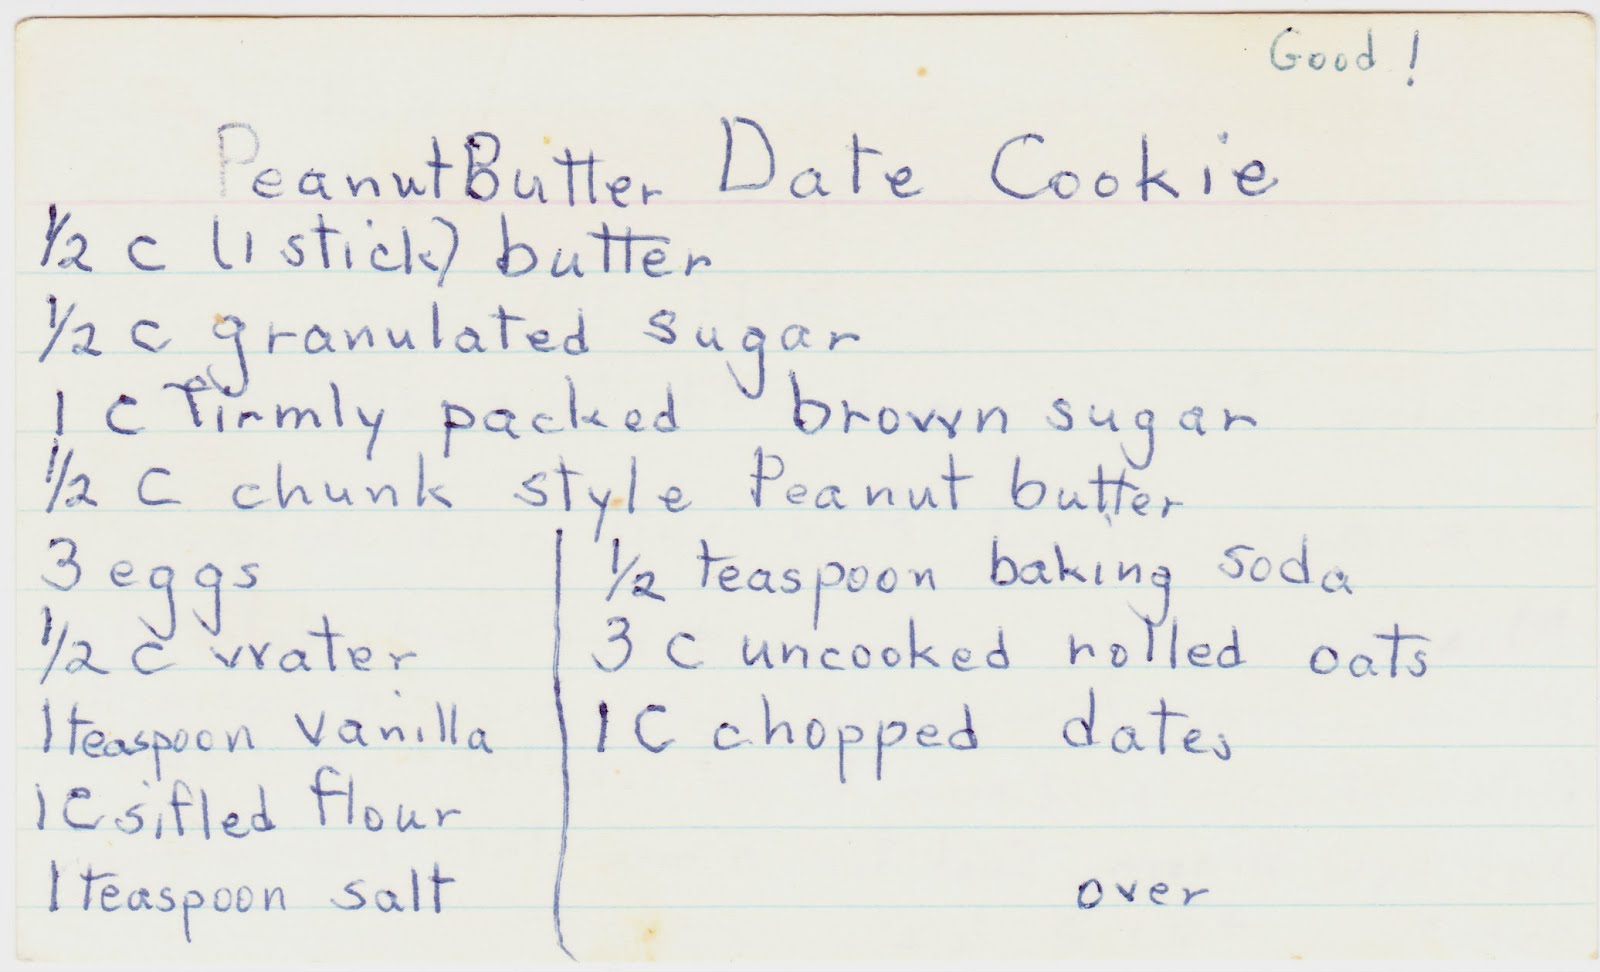 Good!
Peanut Butter Date Cookie
1/2 c (1 stick) butter
1/2 c granulated sugar
1 c firmly packed brown sugar
1/2 c chunk style Peanut butter
3 eggs
1/2 c water
1 teaspoon vanilla
1 C sifted flour
1 teaspoon salt
1/2 teaspoon baking soda
3 c uncooked rolled oats
1 C chopped dates
over